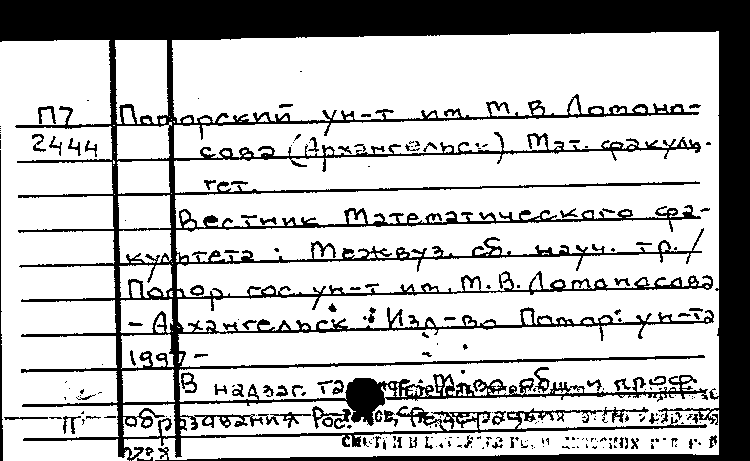 П7 Поморский ун-т им. М.В. Ломоно-
2444 сова (Архангельск). Мат. факуль-
тет.
Вестник Математического фа-
культета : Межвуз. сб. науч. тр. /
Помор. гос. ун-т им. М.В. Ломоносова.
- Архангельск : Изд-во Помор. ун-та
1997 -
В надзаг. также: М-во общ. и проф.
образования Рос. Федерации